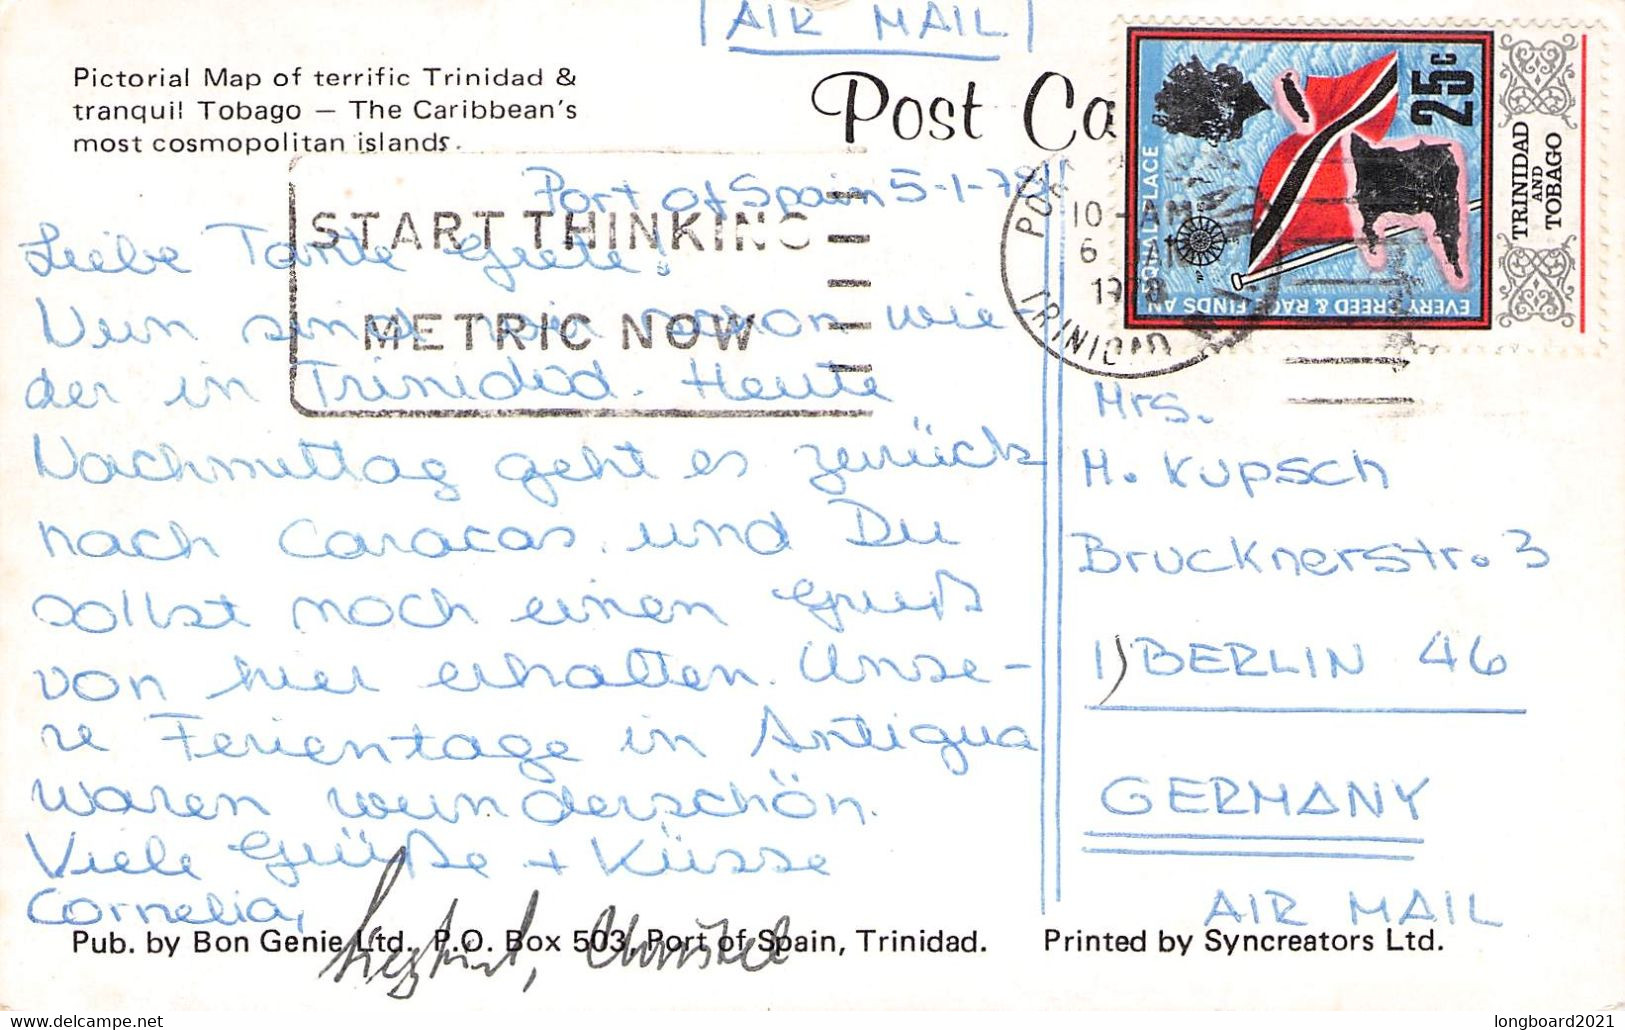 AIR MAIL
Pictorial Map of terrific Trinidad &
tranquil Tobago – The Caribbean's
most cosmopolitan islands.
Post Ca
25c
TRINIDAD
AND
TOBAGO
EVERY CREED & RACE FINDS AN EQUAL PLACE
START THINKING
METRIC NOW
10-AM
6 JAN
1978
TRINIDAD
Port of Spain 5-1-78
Liebe Tante Grete!
Nun sind wir schon wie
der in Trinidad. Heute
Nachmittag geht es zurück
nach Caracas und Du
sollst noch einen Gruß
von hier erhalten. Unse-
re Ferientage in Antigua
waren wunderschön.
Viele Grüße + Küsse
Cornelia,
Siegfried, Christel
Mrs.
H. Kupsch
Brucknerstr. 3
1) BERLIN 46
GERMANY
AIR MAIL
Pub. by Bon Genie Ltd. P.O. Box 503, Port of Spain, Trinidad.
Printed by Syncreators Ltd.
www.delcampe.net
longboard2021